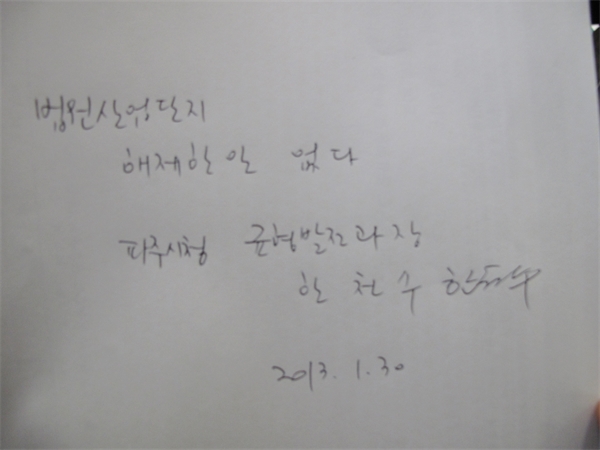 법원산업단지
해제한일 없다
파주시청 균형발전과장
한 천 수 한천수
2013. 1. 30